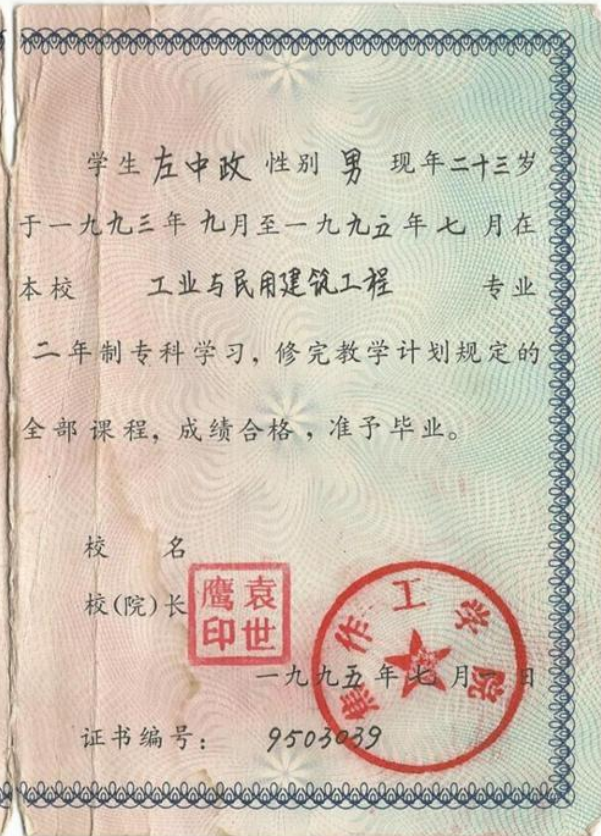 学生左中政性别男现年二十三岁
于一九九三年九月至一九九五年七月在
本校 工业与民用建筑工程 专业
二年制专科学习，修完教学计划规定的
全部课程，成绩合格，准予毕业。
校 名
校(院)长
袁世鹰印
焦作工学院
一九九五年七月一日
证书编号： 9503039